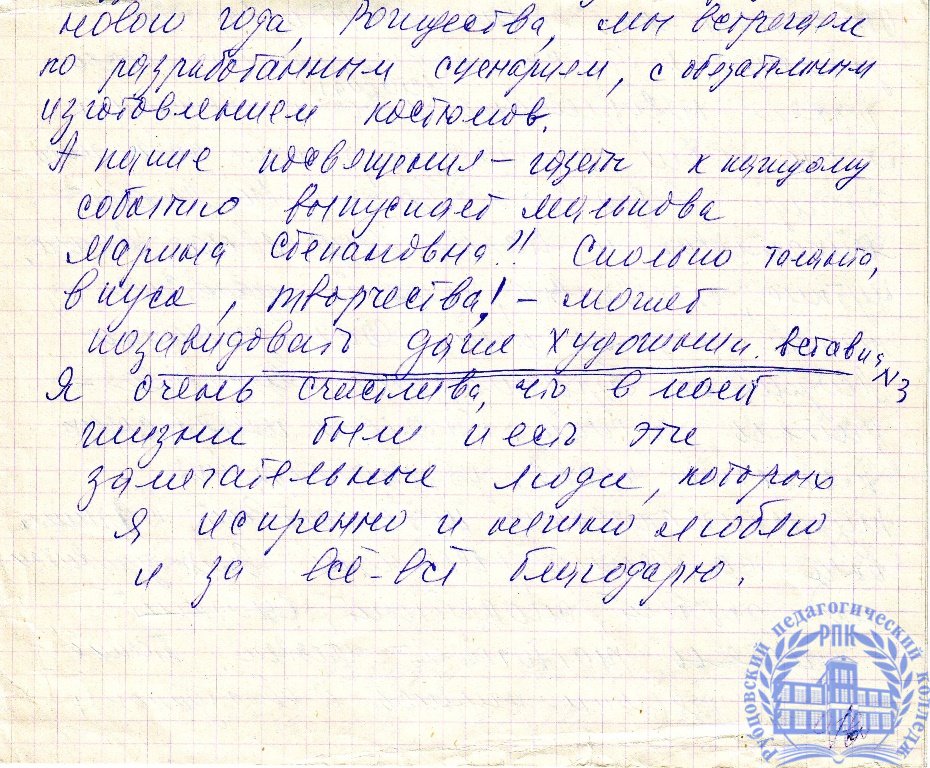 нового года, Рождества, мы встречаем
по разработанным сценариям, с обязательным
изготовлением костюмов.
А наше посвящения – газеты к каждому
событию выпускает Малькова
Марина Степановна!! Сколько таланта,
вкуса, творчества! – может
позавидовать даже художник. вставка
N3
Я очень счастлива, что в моей
жизни были и есть эти
замечательные люди, которых
я искренно и нежно люблю
и за всё-всё благодарю.
Рубцовский педагогический колледж
РПК